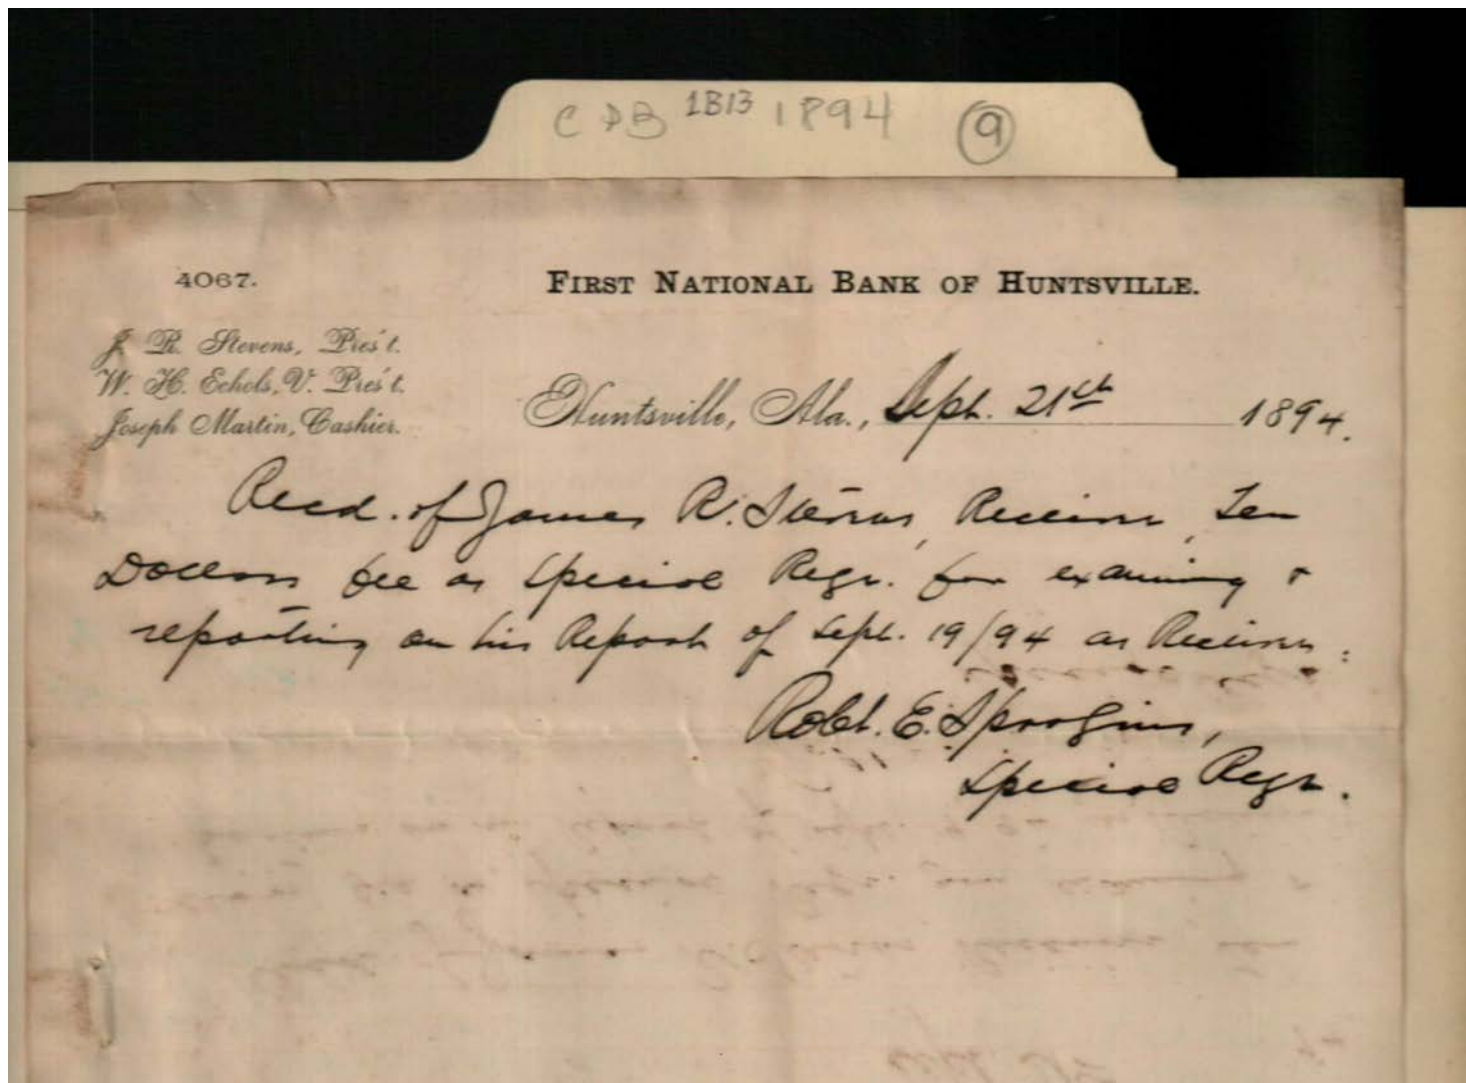 CDB 1B13 1894 9
4067.
FIRST NATIONAL BANK OF HUNTSVILLE.
J. R. Stevens, Pres't.
W. H. Echols, V. Pres't.
Joseph Martin, Cashier.
Huntsville, Ala., Sept. 21st 1894.
Recd. of James R. Stevens, Receiver, Ten
Dollars fee as Special Regr. for examining &
reporting on his Report of Sept. 19/94 as Receiver.
Robt. E. Spragins,
Special Regr.